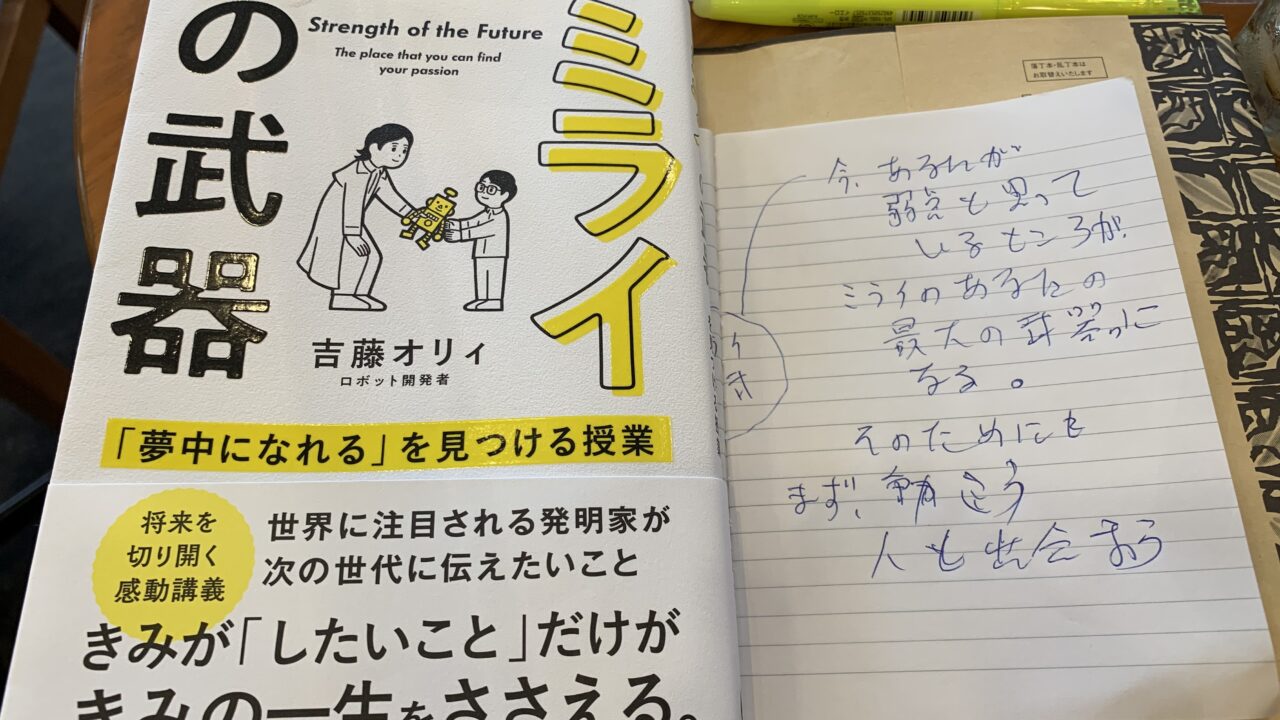 ミライ
の武器
Strength of the Future
The place that you can find
your passion
吉藤オリィ
ロボット開発者
「夢中になれる」を見つける授業
将来を
切り開く
感動講義
世界に注目される発明家が
次の世代に伝えたいこと
きみが「したいこと」だけが
きみの一生をささえる。
落丁本・乱丁本は
お取替えいたします
今、あなたが
弱点と思って
いるところが、
ミライのあなたの
最大の武器に
なる。
そのためにも
まず、
人と出会おう